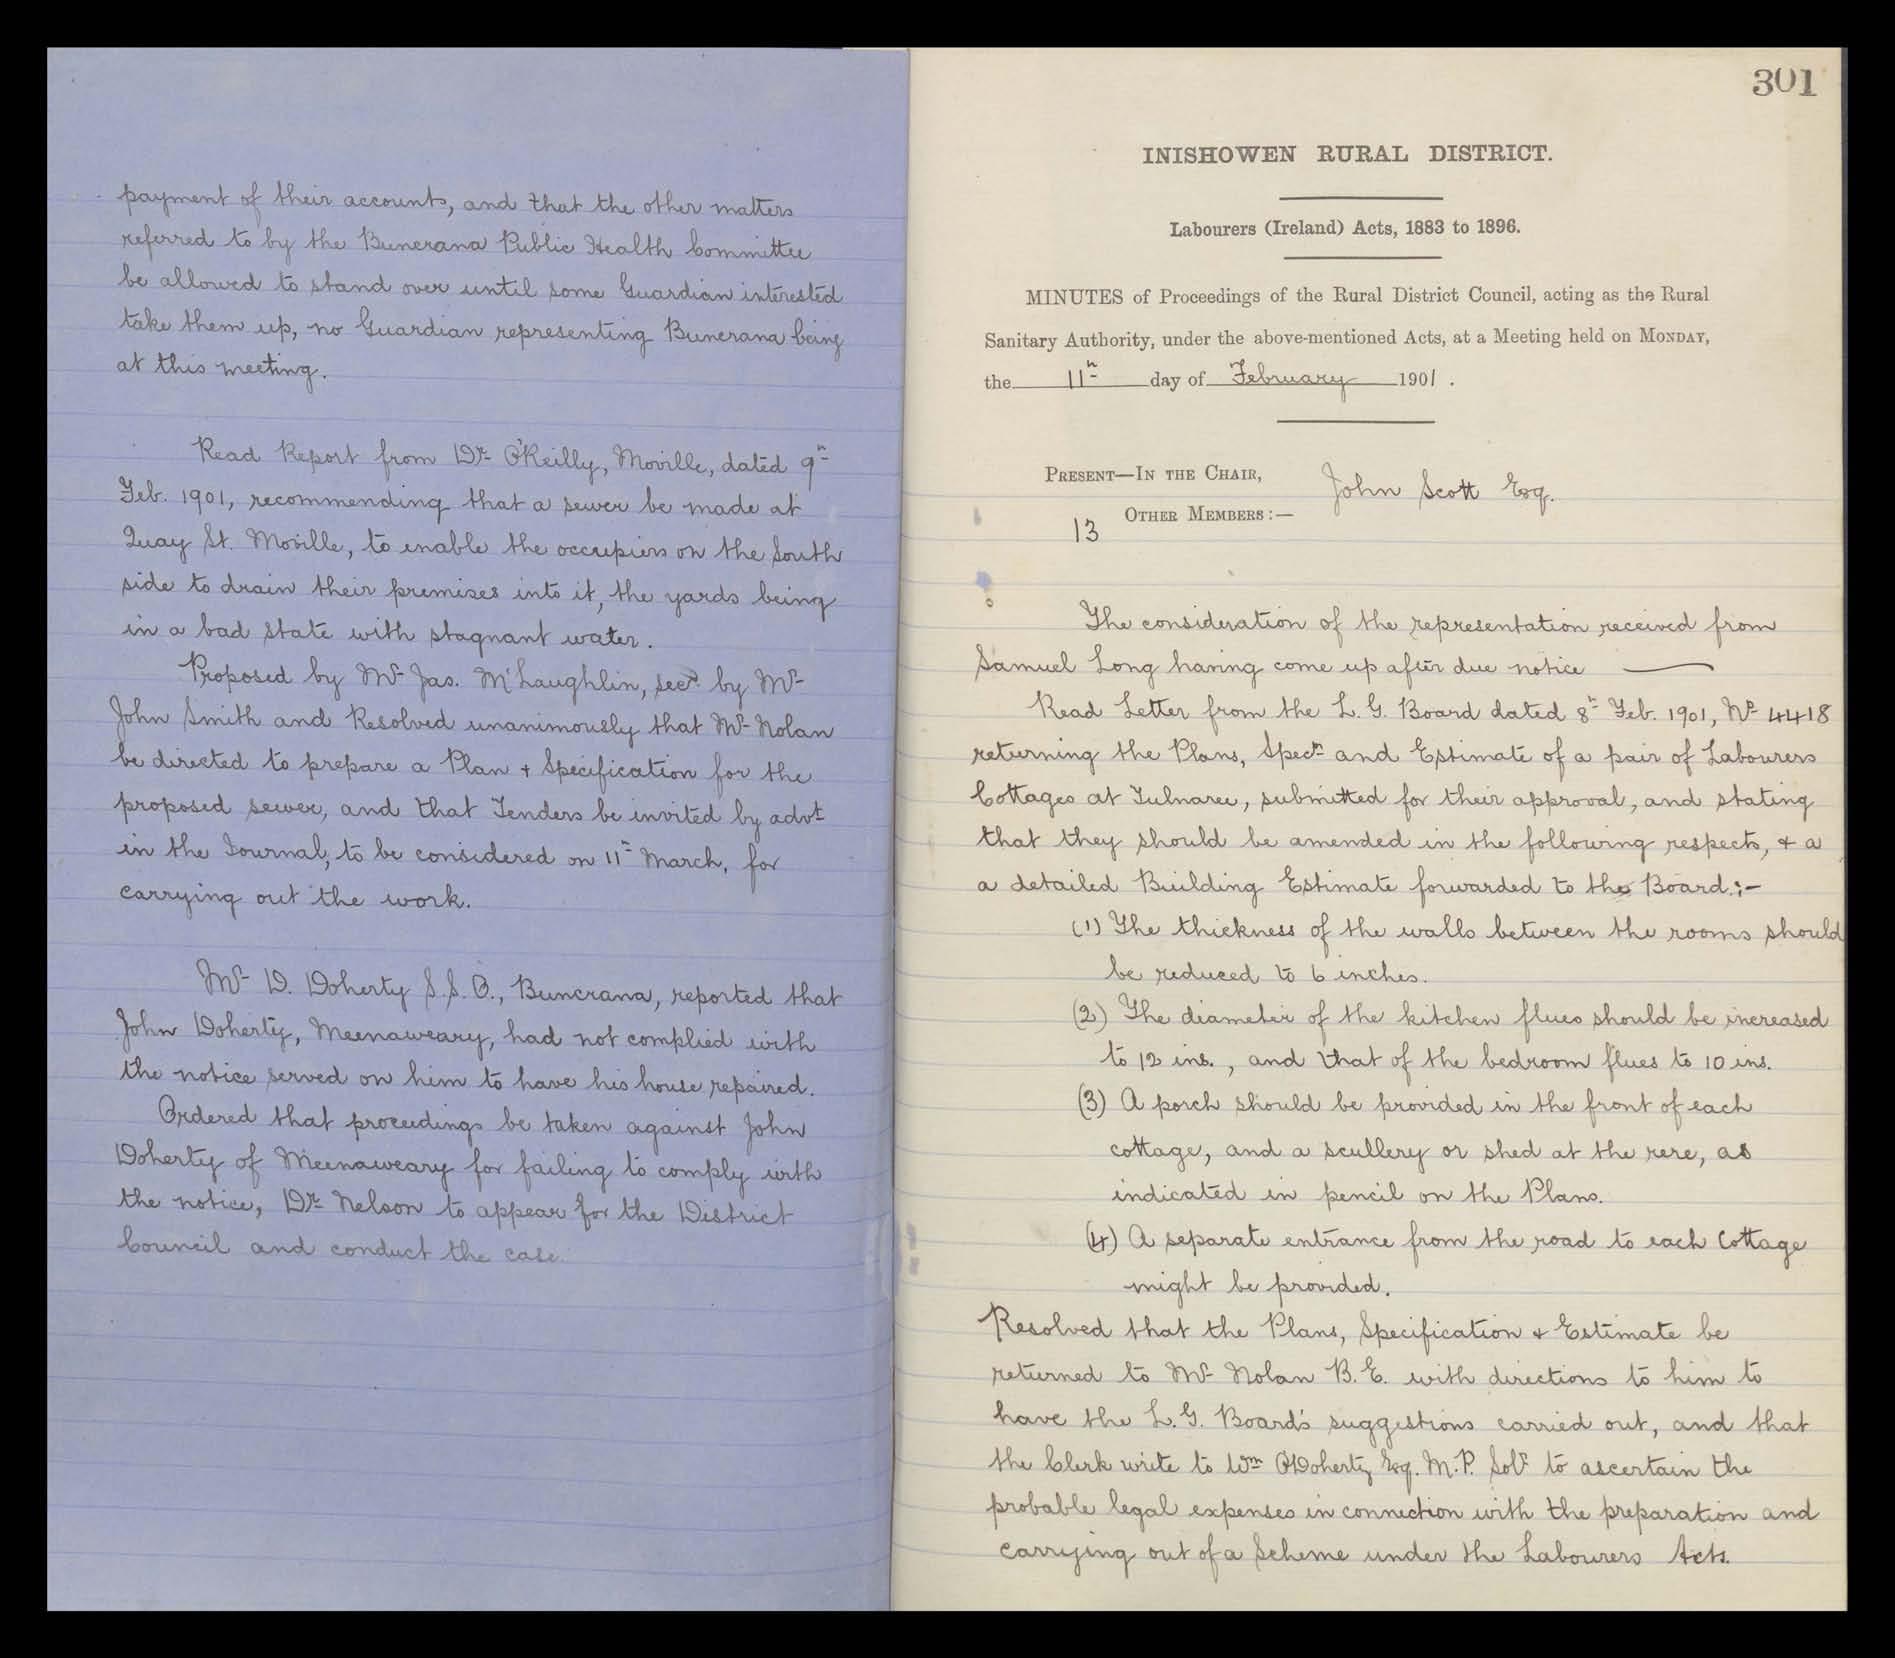 payment of their accounts, and that the other matters
referred to by the Buncrana Public Health Committee
be allowed to stand over until some Guardian interested
take them up, no Guardian representing Buncrana being
at this meeting.
Read Report from Dr O'Reilly, Moville, dated 9th
Feb. 1901, recommending that a sewer be made at
Quay St. Moville, to enable the occupiers on the South
side to drain their premises into it, the yards being
in a bad state with stagnant water.
Proposed by Mr Jas. McLaughlin, secd by Mr
John Smith and Resolved unanimously that Mr Nolan
be directed to prepare a Plan + Specification for the
proposed sewer, and that Tenders be invited by advt
in the Journal, to be considered on 11th March, for
carrying out the work.
Mr D. Doherty S.S.O., Buncrana, reported that
John Doherty, Meenaweary, had not complied with
the notice served on him to have his house repaired.
Ordered that proceedings be taken against John
Doherty of Meenaweary for failing to comply with
the notice, Dr Nelson to appear for the District
Council and conduct the case.
301
INISHOWEN RURAL DISTRICT.
Labourers (Ireland) Acts, 1883 to 1896.
MINUTES of Proceedings of the Rural District Council, acting as the Rural
Sanitary Authority, under the above-mentioned Acts, at a Meeting held on MONDAY,
the 11th day of February 1901.
PRESENT—IN THE CHAIR, John Scott Esq.
13 OTHER MEMBERS:—
The consideration of the representation received from
Samuel Long having come up after due notice —
Read Letter from the L. G. Board dated 8th Feb. 1901, No 4418
returning the Plans, Specn and Estimate of a pair of Labourers
Cottages at Tulnaree, submitted for their approval, and stating
that they should be amended in the following respects, + a
a detailed Building Estimate forwarded to the Board:-
(1) The thickness of the walls between the rooms should
be reduced to 6 inches.
(2) The diameter of the kitchen flues should be increased
to 12 ins., and that of the bedroom flues to 10 ins.
(3) A porch should be provided in the front of each
cottage, and a scullery or shed at the rere, as
indicated in pencil on the Plans.
(4) A separate entrance from the road to each Cottage
might be provided.
Resolved that the Plans, Specification + Estimate be
returned to Mr Nolan B.E. with directions to him to
have the L.G. Board's suggestions carried out, and that
the Clerk write to Wm O'Doherty Esq. M.P. Solr to ascertain the
probable legal expenses in connection with the preparation and
carrying out of a Scheme under the Labourers Acts.